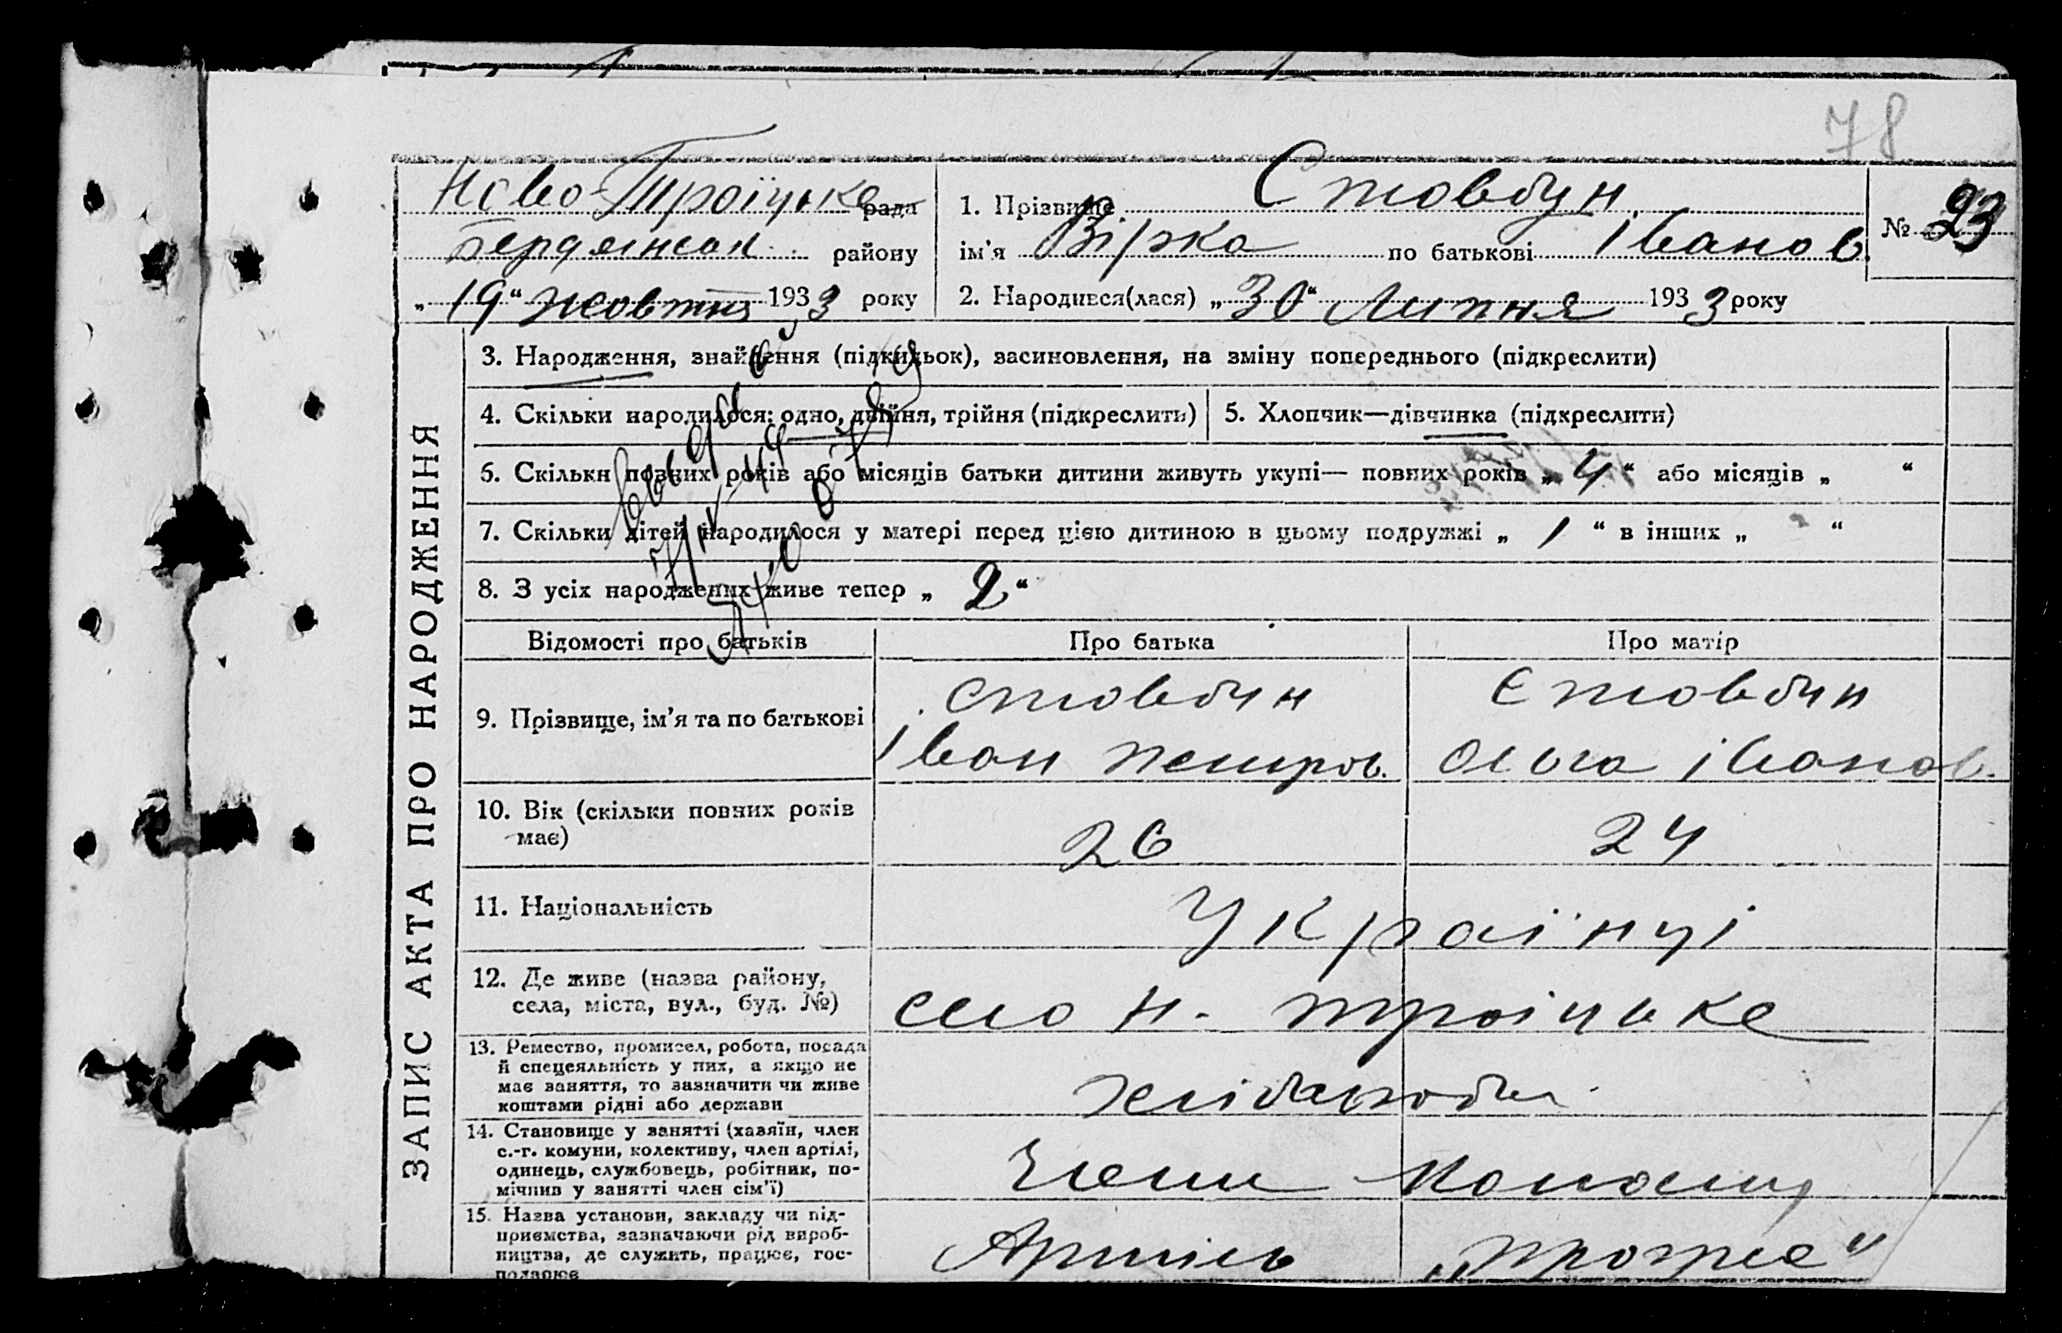 78
Ново-Троїцьке рада
Бердянськ. району
„19“ жовтня 1933 року
1. Прізвище Стовбун
ім'я Вірка по батькові Іванов.
№ 23
2. Народився(лася) „30“ Липня 1933 року
ЗАПИС АКТА ПРО НАРОДЖЕННЯ
3. Народження, знайдення (підкидьок), засиновлення, на зміну попереднього (підкреслити)
4. Скільки народилося: одно, двійня, трійня (підкреслити)
5. Хлопчик—дівчинка (підкреслити)
6. Скільки повних років або місяців батьки дитини живуть укупі— повних років „4“ або місяців „ “
7. Скільки дітей народилося у матері перед цією дитиною в цьому подружжі „1“ в інших „ “
8. З усіх народжених живе тепер „2“
Відомості про батьків
Про батька
Про матір
9. Прізвище, ім'я та по батькові
Стовбун
Іван Петров.
Стовбун
Ольга Іванов.
10. Вік (скільки повних років
має)
26
24
11. Національність
Українці
12. Де живе (назва району,
села, міста, вул., буд. №)
село Н. Троіцьке
13. Ремество, промисел, робота, посада
й спецеяльність у них, а якщо не
має заняття, то зазначити чи живе
коштами рідні або держави
хліборобы
14. Становище у занятті (хазяїн, член
с.-г. комуни, колективу, член артілі,
одинець, службовець, робітник, по-
мічник у занятті член сім'ї)
Члени
15. Назва установи, закладу чи під-
приємства, зазначаючи рід вироб-
ництва, де служить, працює, гос-
подарює
Артіль